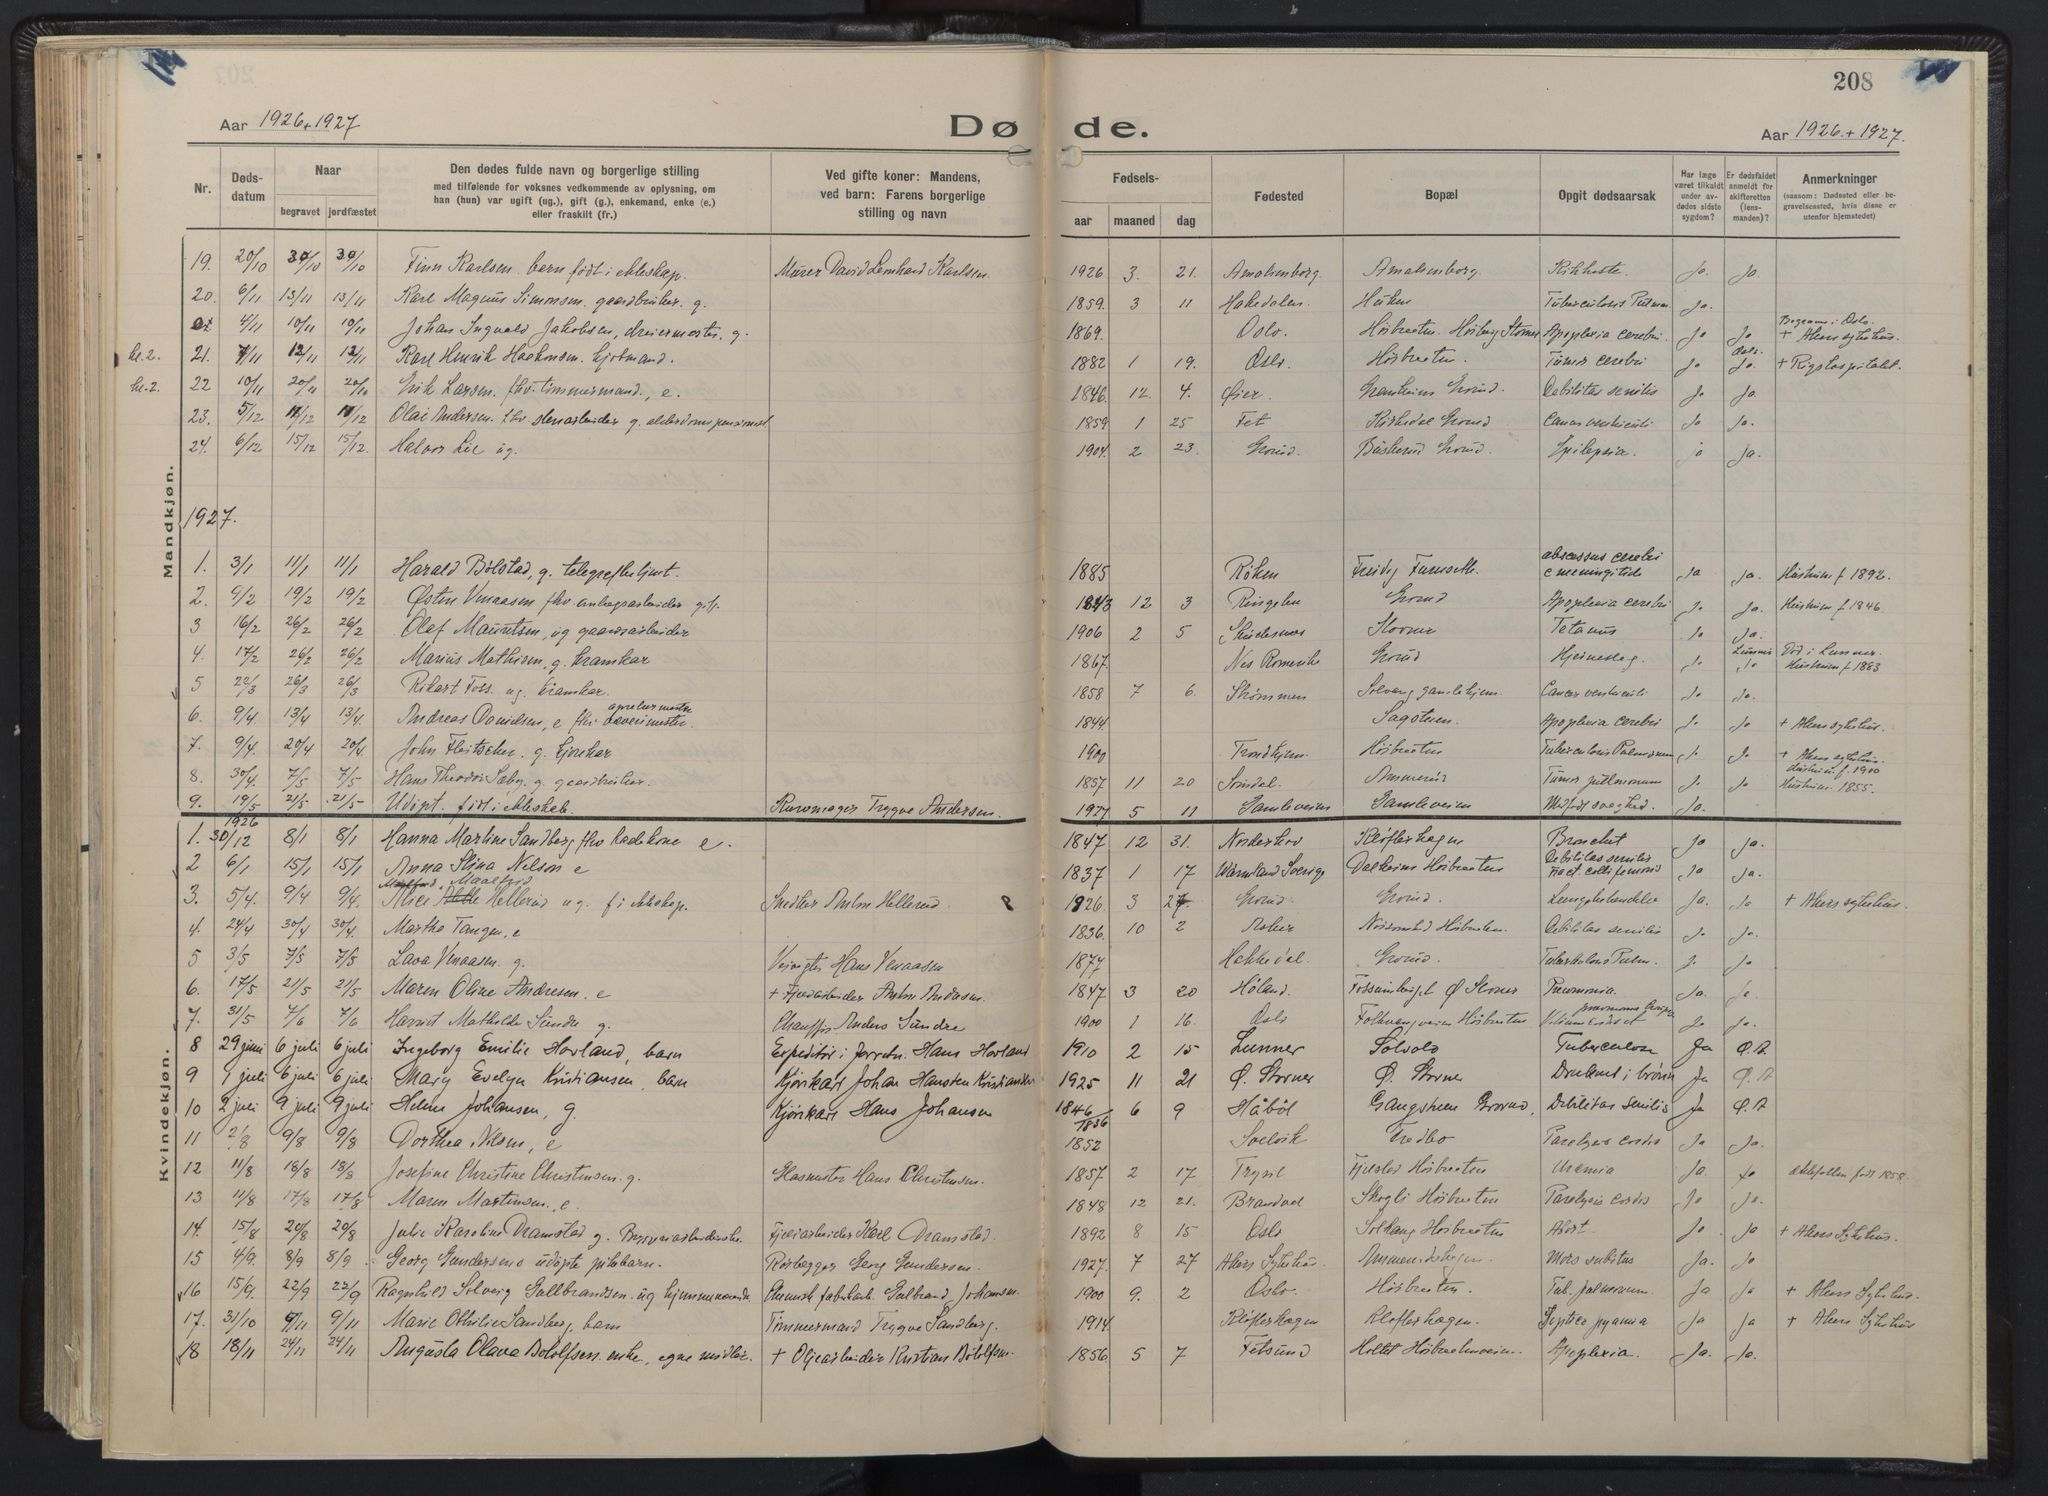 208
Aar 1926+1927
Dø
de.
Aar 1926.+1927.
Nr.
Døds-
datum
Naar
begravet jordfæstet
Den dødes fulde navn og borgerlige stilling
med tilføiende for voksnes vedkommende av oplysning, om
han (hun) var ugift (ug.), gift (g.), enkemand, enke (e.)
eller fraskilt (fr.)
Ved gifte koner: Mandens,
ved barn: Farens borgerlige
stilling og navn
Fødsels-
aar maaned dag
Fødested
Bopæl
Opgit dødsaarsak
Har læge
været tilkaldt
under av-
dødes sidste
sygdom?
Er dødsfaldet
anmeldt for
skifteretten
(lens-
manden)?
Anmerkninger
(saasom: Dødssted eller be-
gravelsessted, hvis disse er
utenfor hjemstedet)
Mandkjøn.
19. 20/10 30/10 30/10 Finn Karlsen. barn født i ekteskap. Murer David Lenhard Karlsen. 1926 3. 21. Amalienborg. Amalienborg. Kikhoste. Ja. Ja.
20. 6/11 13/11 13/11 Karl Magnus Simonsen. gaardbruker. g. 1859. 3 11 Hakedalen. Tuberculosis Pulmon. Ja.
4/11 10/11 10/11 Johan Ingvald Jakobsen, dreiermester. g. 1869. Oslo. Høibraaten. Apoplexia cerebri. Ja Ja Begrav. i Oslo. + Akers sykehus.
kl.2. 21. 7/11 12/11 12/11 Karl Henrik Haakonsen. kjøbmand. 1882 1 19. Oslo. Høibraaten. Tumor cerebri Ja Ja. + Rigshospitalet.
kl.2. 22 10/11 20/11 20/10 Erik Larsen. fhv. timmermand., e. 1846. 12. 4. Øier. Grorud. Debilitas senilis Ja Ja.
23. 5/12 11/12 11/12 Olai Andersen. fhv stenarbeider g. alderdomspensionist 1859 1 25 Fet Grorud Cancer ventriculi Ja Ja.
24. 6/12 15/12 15/12. Halvor Lie ug. 1904. 2 23. Grorud. Buskerud Grorud. Epilepsia. ja Ja.
1927.
1. 3/1 11/1 11/1 Harald Bolstad, g. telegrafbetjent. 1885 Røken abscessus cerebri e meningitide Ja Ja. Hustrum f 1892.
2. 9/2 19/2 19/2 Østen Venaasen fhv anlægsarbeider g. 1843 12 3 Ringebu Grorud Apoplexia cerebri Ja Ja. Hustrum f 1846.
3 16/2 26/2 26/2 Olaf Mauritsen, ug gaardsarbeider 1906 2 5 Skudesnes Stovner Tetanus Ja Ja.
4. 17/2 26/2 26/2 Marius Mathisen, g. bramkar 1867. Nes Romerike Grorud Hjerneslag. Ja Lunner Ja Død i Lunner. Hustrum f 1883
5 22/3 26/3 26/3 Rikart Foss. ug. bramkar. 1858 7 6. Strømmen Solvang gamlehjem. Cancer ventriculi Ja Ja.
6. 9/4. 13/4 13/4. Andreas Danielsen, e fhv væverimester. 1844. Sagstuen. Apoplexia cerebri Ja Ja + Akers sykehus.
7. 9/4. 20/4 20/4. John Fleischer. g. kjørekar 1900 Trondhjem. Høibraaten Tuberculosis Pulmonum Ja Ja + Akers sykehus. Hustrum f. 1900
8. 30/4. 7/5 7/5 Hans Theodor Sæby. g. gaardbruker. 1857 11 20 Sørndal. Ammerud Tumor pulmonum Ja Ja Hustrum. 1855.
9. 19/5 21/5 21/5 Udøpt. født i ekteskab. Kurvmager Trygve Andersen. 1927 5 11 Gamleveien Gamleveien Medfødt svaghed. Ja.
Kvindekjøn.
1. 1926 30/12 8/1 8/1 Hanna Martine Sandberg fhv e. 1847 12 31. Norderhov Kløfterhagen Bronchit Ja Ja.
2 6/1 15/1 15/1 Anna Stina Nilson e 1837 1 17 Wärmland Sverige Dalheim Høibraaten Debilitas senilis Fract. colli femoris Ja Ja.
3. 5/4. 9/4 9/4. Alice Hellerud ug. f i ekteskap. Snedker Anton Hellerud. 1926. 3 27 Grorud Grorud. Lungebetændelse Ja. Ja + Akers sykehus.
4. 24/4 30/4 30/4. Martha Tangen, e 1836. 10 2 Asker Høibraaten. Debilitas senilis Ja Ja.
5 3/5 7/5 7/5 Lava Venaasen. g. Veivogter Hans Venaasen 1877 Hakkedal. Grorud. Tuberkulose Pulm. Ja Ja
6. 17/5 21/5 21/5 Maren Oline Andresen. e + Fjeldarbeider Anton Andresen. 1847 3 20 Høland. Fossumberget Ø Stovner Pneumonia. Ja. Ja.
7. 31/5 7/6 7/6 Harriet Mathilde Sundre g. Chauffør Anders Sundre 1900 1 16. Oslo Folkvangveien Høibraaten Vitium cordis Ja Ja.
8 29 juni 6 juli 6 juli Ingeborg Emilie Hovland, barn Expeditør i Jernbn. Hans Hovland 1910 2 15 Lunner Solvold Tuberculose Ja Ø.A
9 1 juli 6 juli 6 juli Mary Evelyn Kristiansen, barn Kjørekarl Johan Hansten Kristiansen 1925 11 21 Ø. Stovner Ø. Stovner Druknet i brønn Ja Ø.A
10 2 juli 9 juli 9 juli Helene Johansen, g Kjørekarl Hans Johansen 1846/1856 6 9 Håbøl Gangstuen Grorud, Debilitas senilis Ja Ø.A
11 2/8 9/8 9/8 Dorthea Nilsen, e 1852 Svelvik Fredbo Paralysis cordis Ja Ja.
12 11/8 18/8 18/8 Josefine Christine Christensen. g. Glasmester Hans Christensen. 1857 2 17 Trysil Høibraaten Uræmia Ja. Ja ektefellen født 1858.
13 11/8 17/8 17/8 Maren Martinsen., e. 1848 12 21. Brandval Skogli Høibraaten Paralysis cordis Ja Ja.
14. 15/8 20/8 20/8 Julie Karoline Dramstad g. Fjeldarbeider Karl Dramstad. 1892 8 15 Oslo Solhaug Høibraaten Abort. Ja Ja + Akers Sykehus.
15 4/9. 8/9 8/9 Georg Gundersens udøpte pikebarn. Rørlægger Georg Gundersen. 1927. 7 27 Akers Sykehus. Mors subitus Ja. Ja
16 15/9. 22/9 22/9 Ragnhild Solveig Gulbrandsen. ug hjemmeværende. Kemisk fabrikarb. Gulbrand Johansen. 1900 9. 2 Oslo. Høibraaten. Tub. pulmonum. Ja Ja + Akers Sykehus.
17. 31/10 9/11 9/11 Marie Othilie Sandberg, barn Tømmermand Trygve Sandberg. 1914 Kløfterhagen Kløfterhagen. Septico pyæmia Ja Ja + Akers Sykehus
18 18/11 24/11 24/11 Augusta Olava Botolfsen. enke, egne midler. + Oljearbeider Kristian Botolfsen. 1856 5 7 Fetsund Høibraatenveien. Apoplexia. Ja. Ja.